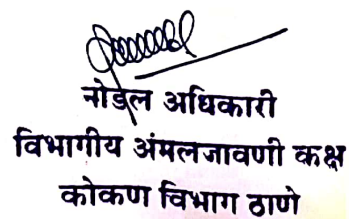 नोडल अधिकारी
विभागीय अंमलजावणी कक्ष
कोकण विभाग ठाणे